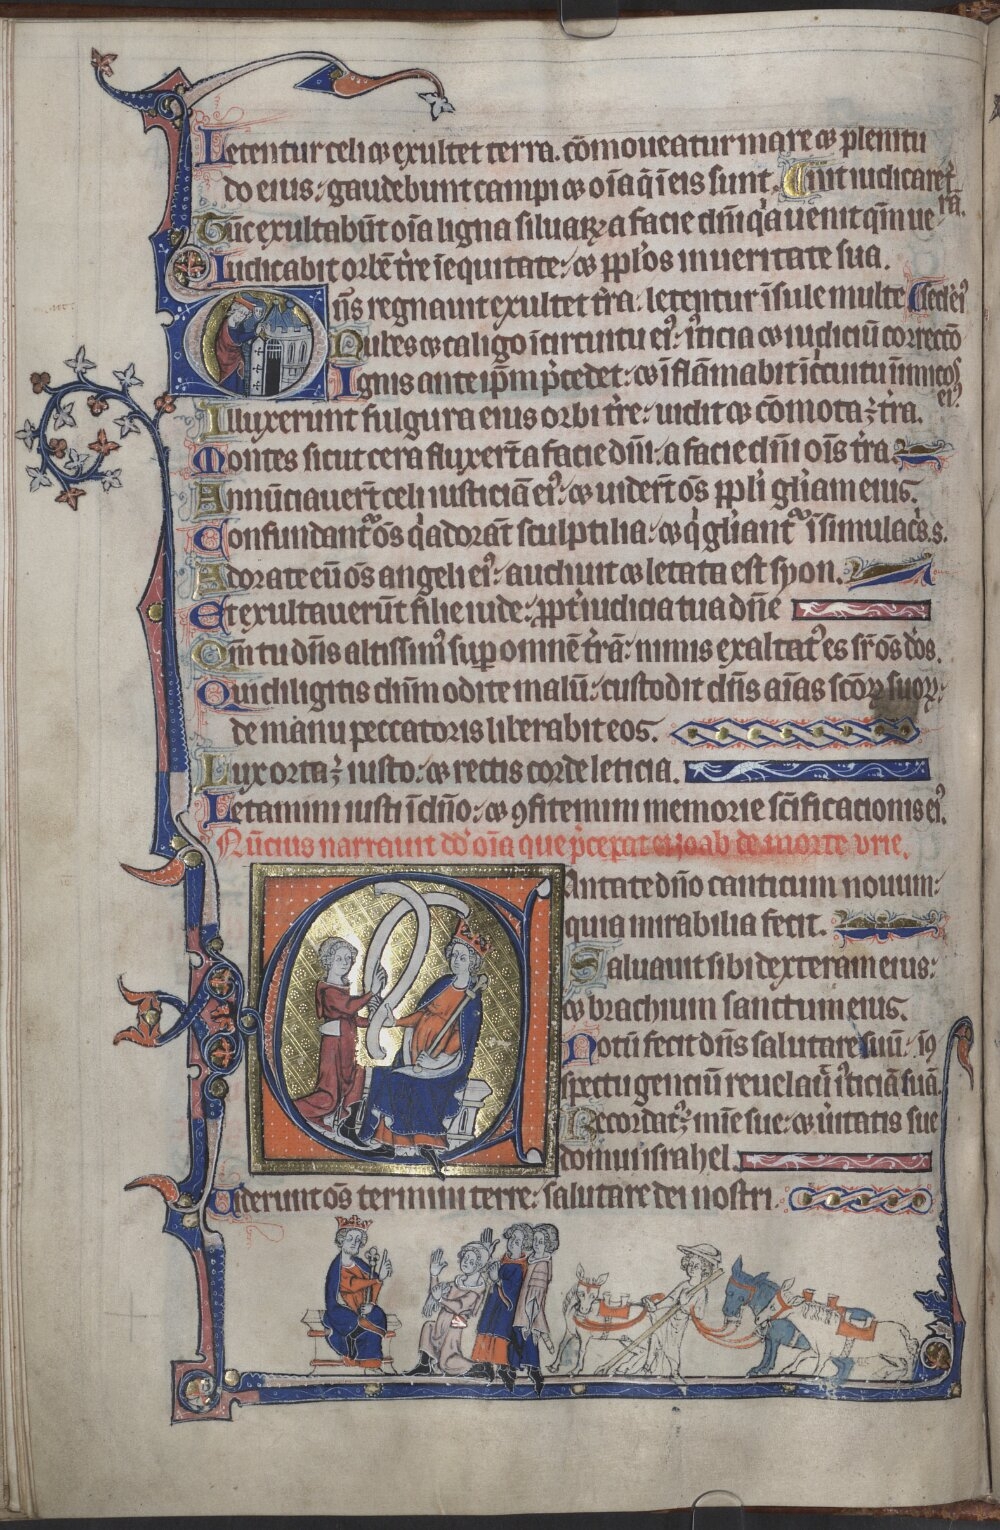 Letentur celi ⁊ exultet terra. cōmoueatur mare ⁊ plenitu
do eius: gaudebunt campi ⁊ oīa q̄ ī eis sunt. C̄ uīt iudicare t̄
rā.
Tūc exultabūt oīa ligna siluaꝝ a facie dn̄i q̓a uenit qm̄ ue
Iudicabit orbē t̄re ī equitate: ⁊ ppl̓os in ueritate sua.
Dn̄s regnauit exultet t̄ra: letentur īsule multe
Nubes ⁊ caligo ī circuitu eiꝰ: iꝰticia ⁊ iudiciū correctō
Ignis ante ip̄m p̓cedet: ⁊ īflāmabit ī c̓cuitu inimicos
eiꝰ
Illuxerunt fulgura eius orbi t̄re: uidit ⁊ cōmota ē t̄ra.
Montes sicut cera fluxer̄t a facie dn̄i: a facie dn̄i oīs t̄ra.
Annūciauer̄t celi iusticiā eiꝰ: ⁊ uider̄t oēs ppl̓i gl̓iam eius.
Confundantᷣ oēs q̓ adorāt sculptilia: ⁊ q̓ gl̓iantᷣ ī simulac̓s s.
Adorate eū oēs angeli eiꝰ: audiuit ⁊ letata est syon.
Et exultauerūt filie iude: ꝓpt̓ iudicia tua dn̄e
Qm̄ tu dn̄s altissimꝰ suꝑ omnē t̄rā: nimis exaltatꝰ es sr̄ oēs dōs.
Qui diligitis dn̄m odite malū: custodit dn̄s aīas scōꝝ suoꝝ:
de manu peccatoris liberabit eos.
Lux orta ē iusto: ⁊ rectis corde leticia.
Letamini iusti ī dn̄o: ⁊ ꝯfitemini memorie sc̄ificationis eiꝰ.
Nūcius narrauit dd̓ oīa que p̓ceperat ei ioab de morte vrie.
Cantate dn̄o canticum nouum:
quia mirabilia fecit.
Saluauit sibi dexteram eius:
⁊ brachium sanctum eius.
Notū fecit dn̄s salutare suū: ī ꝯ
spectu genciū reuelauit iꝰticiā suā.
Recordatꝰ ē mīe sue: ⁊ ūitatis sue
domui israhel.
Uiderunt oēs termini terre: salutare dei nostri.